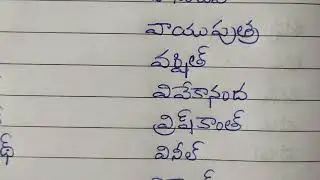 వాయుపుత్ర
వర్షిత్
వివేకానంద
వ్రిష్‌కాంత్
వినీల్